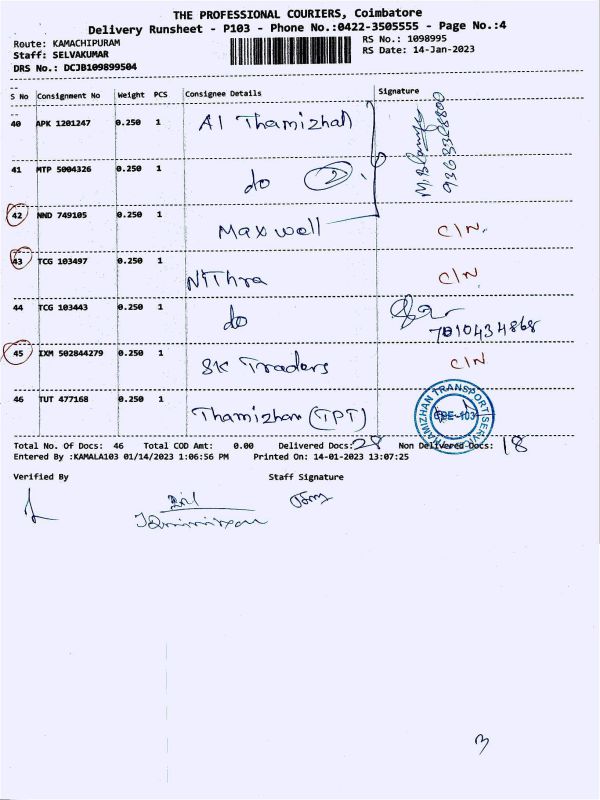 THE PROFESSIONAL COURIERS, Coimbatore
Delivery Runsheet - P103 - Phone No.:0422-3505555 - Page No.:4
Route: KAMACHIPURAM RS No.: 1098995
Staff: SELVAKUMAR RS Date: 14-Jan-2023
DRS No.: DCJB109899504
S No Consignment No Weight PCS Consignee Details Signature
40 APK 1201247 0.250 1 A1 Thamizhan
9363308800
41 MTP 5004326 0.250 1 do 2
42 NND 749105 0.250 1 Maxwell C/N.
43 TCG 103497 0.250 1 Nithra C/N
44 TCG 103443 0.250 1 do
7010434868
45 IXM 502844279 0.250 1 SK Traders C/N
46 TUT 477168 0.250 1 Thamizhan (TPT)
THAMIZHAN TRANSPORT SERVICE
CBE-103
Total No. Of Docs: 46 Total COD Amt: 0.00 Delivered Docs: 28 Non Delivered Docs: 18
Entered By :KAMALA103 01/14/2023 1:06:56 PM Printed On: 14-01-2023 13:07:25
Verified By Staff Signature